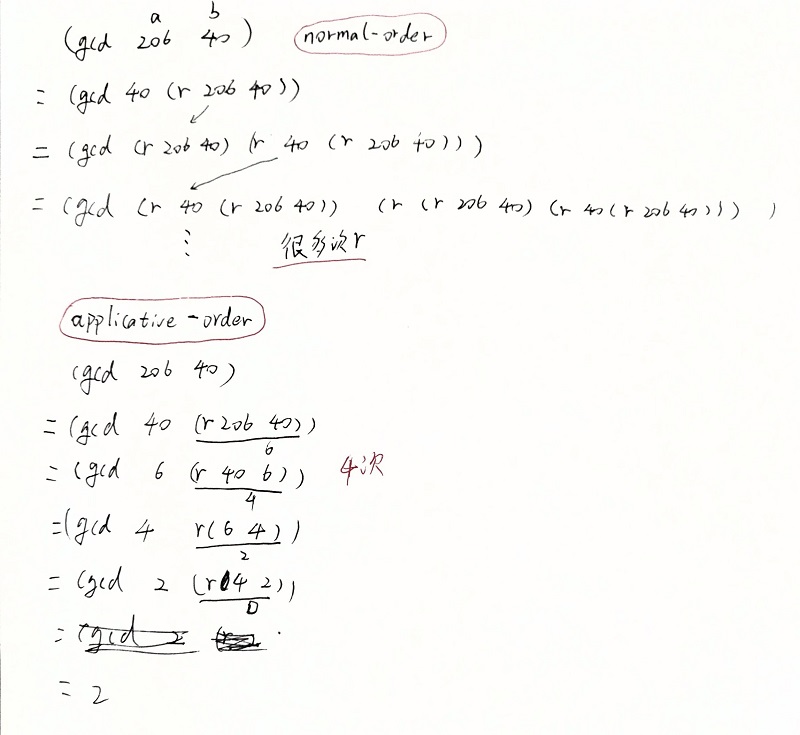 a b
(gcd 206 40) normal-order
= (gcd 40 (r 206 40))
= (gcd (r 206 40) (r 40 (r 206 40)))
= (gcd (r 40 (r 206 40)) (r (r 206 40) (r 40 (r 206 40))) )
⋮ 很多次r
applicative-order
(gcd 206 40)
= (gcd 40 (r 206 40))
6
= (gcd 6 (r 40 6)) 4次
4
= (gcd 4 r(6 4))
2
= (gcd 2 (r 4 2))
0
= (gcd 2
= 2